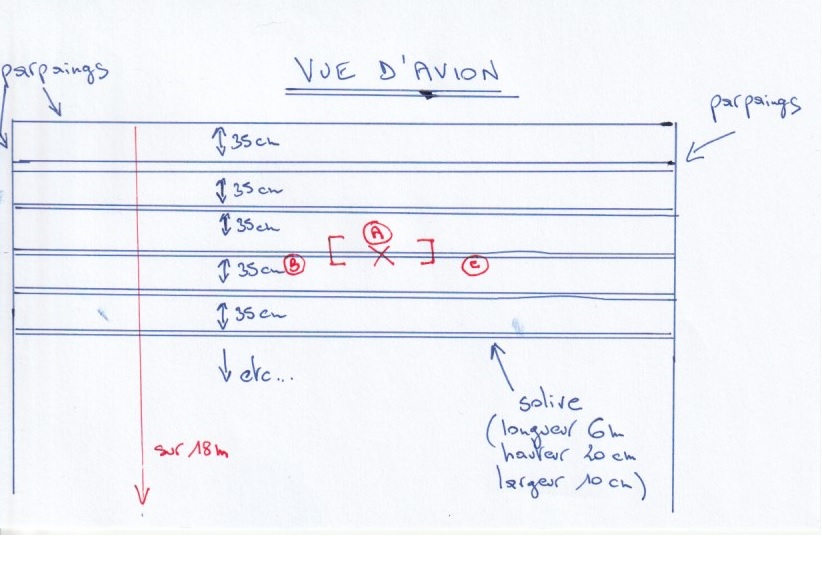 parpaings
VUE D'AVION
parpaings
35 cm
35 cm
35 cm
A
35 cm B
[ X ]
C
35 cm
etc...
sur 18m
solive
(longueur 6m
hauteur 20 cm
largeur 10 cm)